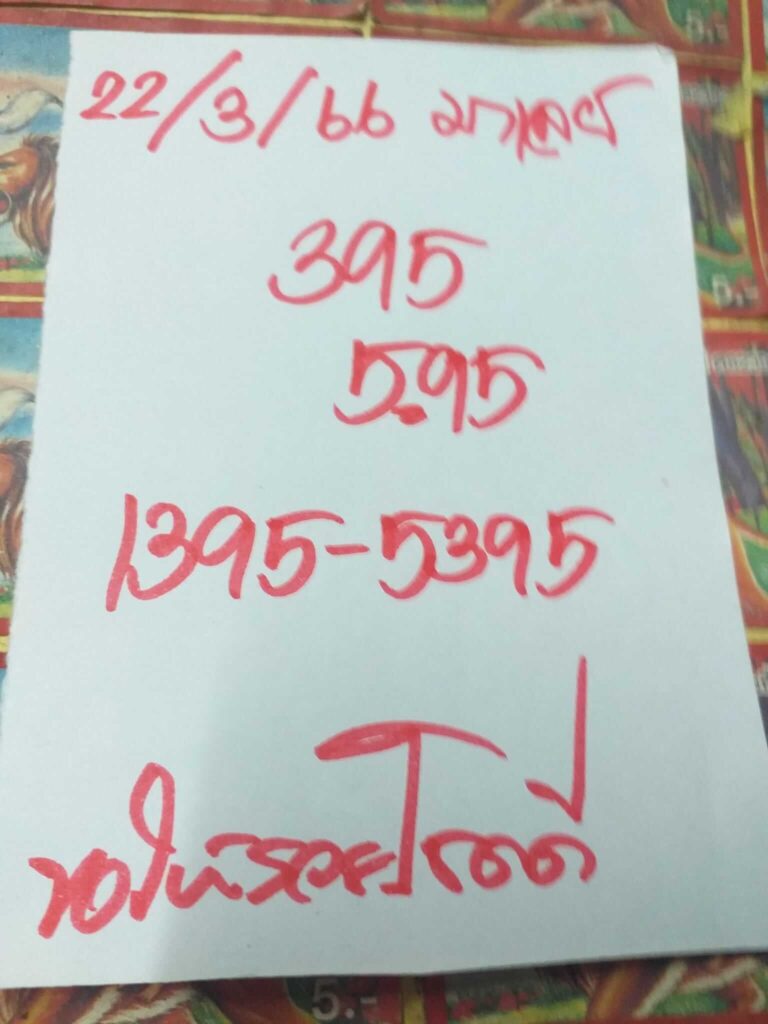 22/3/66 มาเลย์
395
5.95
1395-5395
ขอให้รวยโชคดี
5.-
5.-
5.-